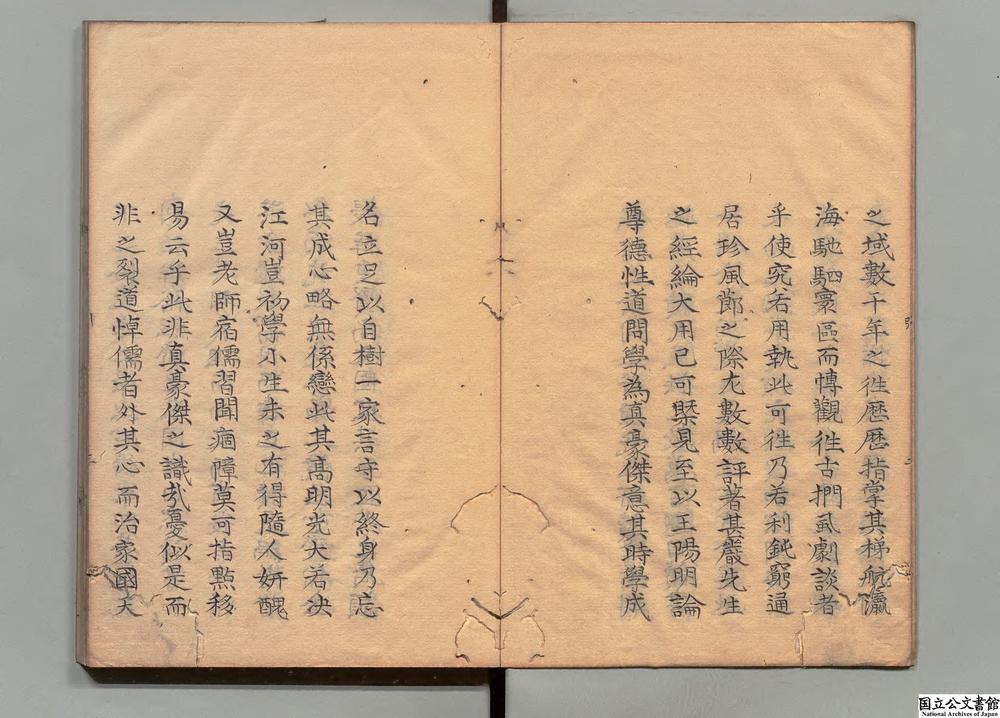 之域數千年之徃歷歷指掌其梯航瀛
海馳駟寰區而慱觀徃古捫虱劇談者
乎使究右用執此可徃乃若利鈍窮通
居珍風節之際尤數數評著甚嚴先生
之經綸大用已可槩見至以王陽明論
尊德性道問學為真豪傑意其時學成
名立足以自樹一家言守以終身乃忘
其成心略無係戀此其髙明光大若決
江河豈初學小生未之有得隨人妍醜
又豈老師宿儒習聞痼障莫可指點移
易云乎此非真豪傑之識㢤憂似是而
非之裂道悼儒者外其心而治家國天
国立公文書館
National Archives of Japan